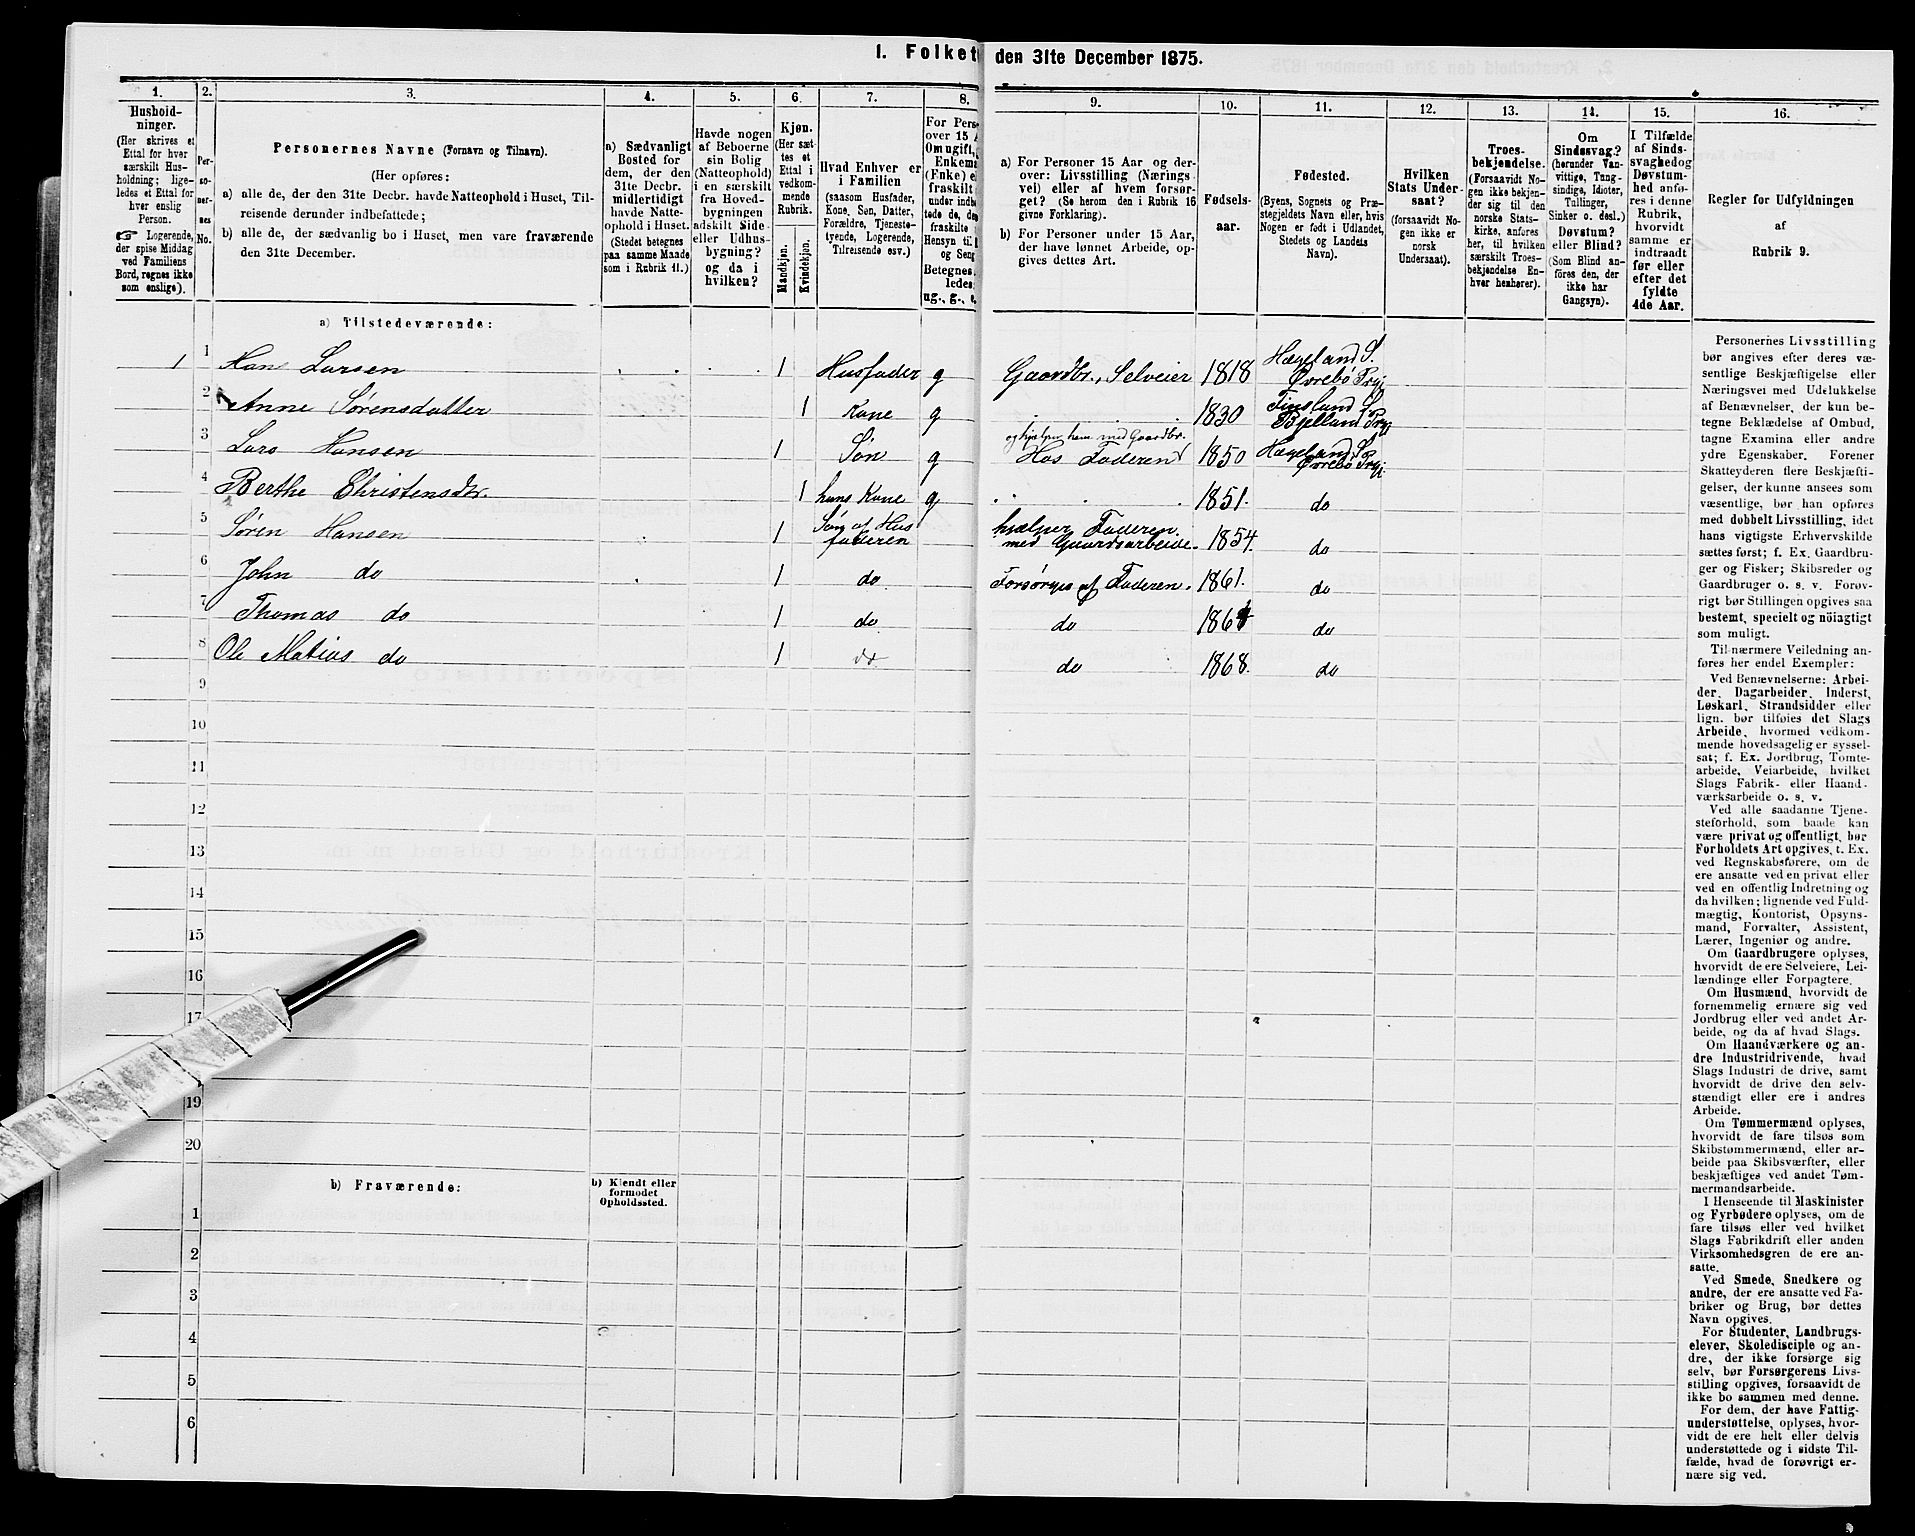 1. Folket den 31te December 1875.
1. 2. 3. 4. 5. 6. 7. 8. 9. 10. 11. 12. 13. 14. 15. 16.
Hushold-
ninger.
(Her skrives et
Ettal for hver
særskilt Hus-
holdning; lige-
ledes et Ettal for
hver enslig
Person.
☞ Logerende,
der spise Middag
ved Familiens
Bord, regnes ikke
som enslige).
Per-
so-
ner-
nes
No.
Personernes Navne (Fornavn og Tilnavn).
(Her opføres:
a) alle de, der den 31te Decbr. havde Natteophold i Huset, Til-
reisende derunder indbefattede;
b) alle de, der sædvanlig bo i Huset, men vare fraværende
den 31te December.
a) Sædvanligt
Bosted for
dem, der den
31te Decbr.
midlertidigt
havde Natte-
ophold i Huset.
(Stedet betegnes
paa samme Maade
som i Rubrik 11.)
Havde nogen
af Beboerne
sin Bolig
(Natteophold)
i en særskilt
fra Hoved-
bygningen
adskilt Side-
eller Udhus-
bygning?
og da i
hvilken?
Kjøn.
(Her sæt-
tes et
Ettal i
vedkom-
mende
Rubrik.
Mandkjøn.
Kvindekjøn.
Hvad Enhver er
i Familien
(saasom Husfader,
Kone, Søn, Datter,
Forældre, Tjeneste-
tyende, Logerende,
Tilreisende osv.)
For Pers
over 15 A
Om ugift,
Enkema
(Enke) e
fraskilt
under indb
tede de, de
fraskilte
Hensyn til
og Seng
Betegnes
ledes:
ug., g., e.
a) For Personer 15 Aar og der-
over: Livsstilling (Nærings-
vei) eller af hvem forsør-
get? (Se herom den i Rubrik 16
givne Forklaring).
b) For Personer under 15 Aar,
der have lønnet Arbeide, op-
gives dettes Art.
Fødsels-
aar.
Fødested.
(Byens, Sognets og Præ-
stegjeldets Navn eller, hvis
Nogen er født i Udlandet,
Stedets og Landets
Navn).
Hvilken
Stats Under-
saat?
(forsaavidt No-
gen ikke er
norsk
Undersaat).
Troes-
bekjendelse.
(Forsaavidt No-
gen ikke bekjen-
der sig til den
norske Stats-
kirke, anføres
her, til hvilken
særskilt Troes-
bekjendelse En-
hver henhører).
Om
Sindssvag?
(herunder Van-
vittige, Tung-
sindige, Idioter,
Tullinger,
Sinker o. desl.)
Døvstum?
eller Blind?
(Som Blind an-
føres den, der
ikke har
Gangsyn).
I Tilfælde
af Sinds-
svaghed og
Døvstum-
hed anfø-
res i denne
Rubrik,
hvorvidt
samme er
indtraadt
før eller
efter det
fyldte
4de Aar.
Regler for Udfyldningen
af
Rubrik 9.
a) Tilstedeværende:
1 1 Han Larsen 1 Husfader g Gaardbr., Selveier 1818 Hægeland S. Øvrebø Prgj
2 Anne Sørensdatter 1 Kone g 1830 Finsland S Bjelland Prgj
3 Lars Hansen Søn g og hjelper ham med Gaardbr. Hos Faderen 1850 Hægeland S. Øvrebø Prgj
4 Berthe Christensdtr. 1 hans Kone g 1851. do
5 Søren Hansen 1 Søn af Hus faderen hjælper Faderen med Gaardsarbeide. 1854. do
6 John do 1 do Forsørges af Faderen. 1861. do
7 Thomas do 1 do do do
8 Ole Matias do 1 do do 1868. do
9
10
11
12
13
14
15
16
17
19
20
b) Fraværende:
b) Kjendt eller
formodet
Opholdssted.
1
2
3
4
5
6
Personernes Livsstilling
bør angives efter deres væ-
sentlige Beskjæftigelse eller
Næringsvei med Udelukkelse
af Benævnelser, der kun be-
tegne Beklædelse af Ombud,
tagne Examina eller andre
ydre Egenskaber. Forener
Skatteyderen flere Beskjæfti-
gelser, der kunne ansees som
væsentlige, bør han opføres
med dobbelt Livsstilling, idet
hans vigtigste Erhvervskilde
sættes først; f. Ex. Gaardbru-
ger og Fisker; Skibsreder og
Gaardbruger o. s. v. Forøv-
rigt bør Stillingen opgives saa
bestemt, specielt og nöiagtigt
som muligt.
Til nærmere Veiledning an-
føres her endel Exempler:
Ved Benævnelserne: Arbei-
der, Dagarbeider, Inderst,
Løskarl, Strandsidder eller
lign. bør tilføies det Slags
Arbeide, hvormed vedkom-
mende hovedsagelig er syssel-
sat; f. Ex. Jordbrug, Tomte-
arbeide, Veiarbeide, hvilket
Slags Fabrik- eller Haand-
værksarbeide o. s. v.
Ved alle saadanne Tjene-
steforhold, som baade kan
være privat og offentligt, bør
Forholdets Art opgives, t. Ex.
ved Regnskabsførere, om de
ere ansatte ved en privat eller
ved en offentlig Indretning og
da hvilken; lignende ved Fuld-
mægtig, Kontorist, Opsyns-
mand, Forvalter, Assistent,
Lærer, Ingeniør og andre.
Om Gaardbrugere oplyses,
hvorvidt de ere Selveiere, Lei-
lændinge eller Forpagtere.
Om Husmænd, hvorvidt de
fornemmelig ernære sig ved
Jordbrug eller ved andet Ar-
beide, og da af hvad Slags.
Om Haandværkere og an-
dre Industridrivende, hvad
Slags Industri de drive, samt
hvorvidt de drive den selv-
stændigt eller ere i andres
Arbeide.
Om Tømmermænd oplyses,
hvorvidt de fare tilsøs som
Skibstømmermænd, eller ar-
beide paa Skibsværfter, eller
beskjæftiges ved andet Tøm-
mermandsarbeide.
I Henseende til Maskinister
og Fyrbødere oplyses, om de
fare tilsøs eller ved hvilket
Slags Fabrikdrift eller anden
Virksomhedsgren de ere an-
satte.
Ved Smede, Snedkere og
andre, der ere ansatte ved Fa-
briker og Brug, bør dettes
Navn opgives.
For Studenter, Landbrugs-
elever, Skoledisciple og an-
dre, der ikke forsørge sig
selv, bør Forsørgerens Livs-
stilling opgives, forsaavidt de
ikke bo sammen med denne.
For dem, der have Fattig-
understøttelse, oplyses, hvor-
vidt de ere helt eller delvis
understøttede og i sidste Til-
fælde, hvad de forøvrigt er-
nære sig ved.